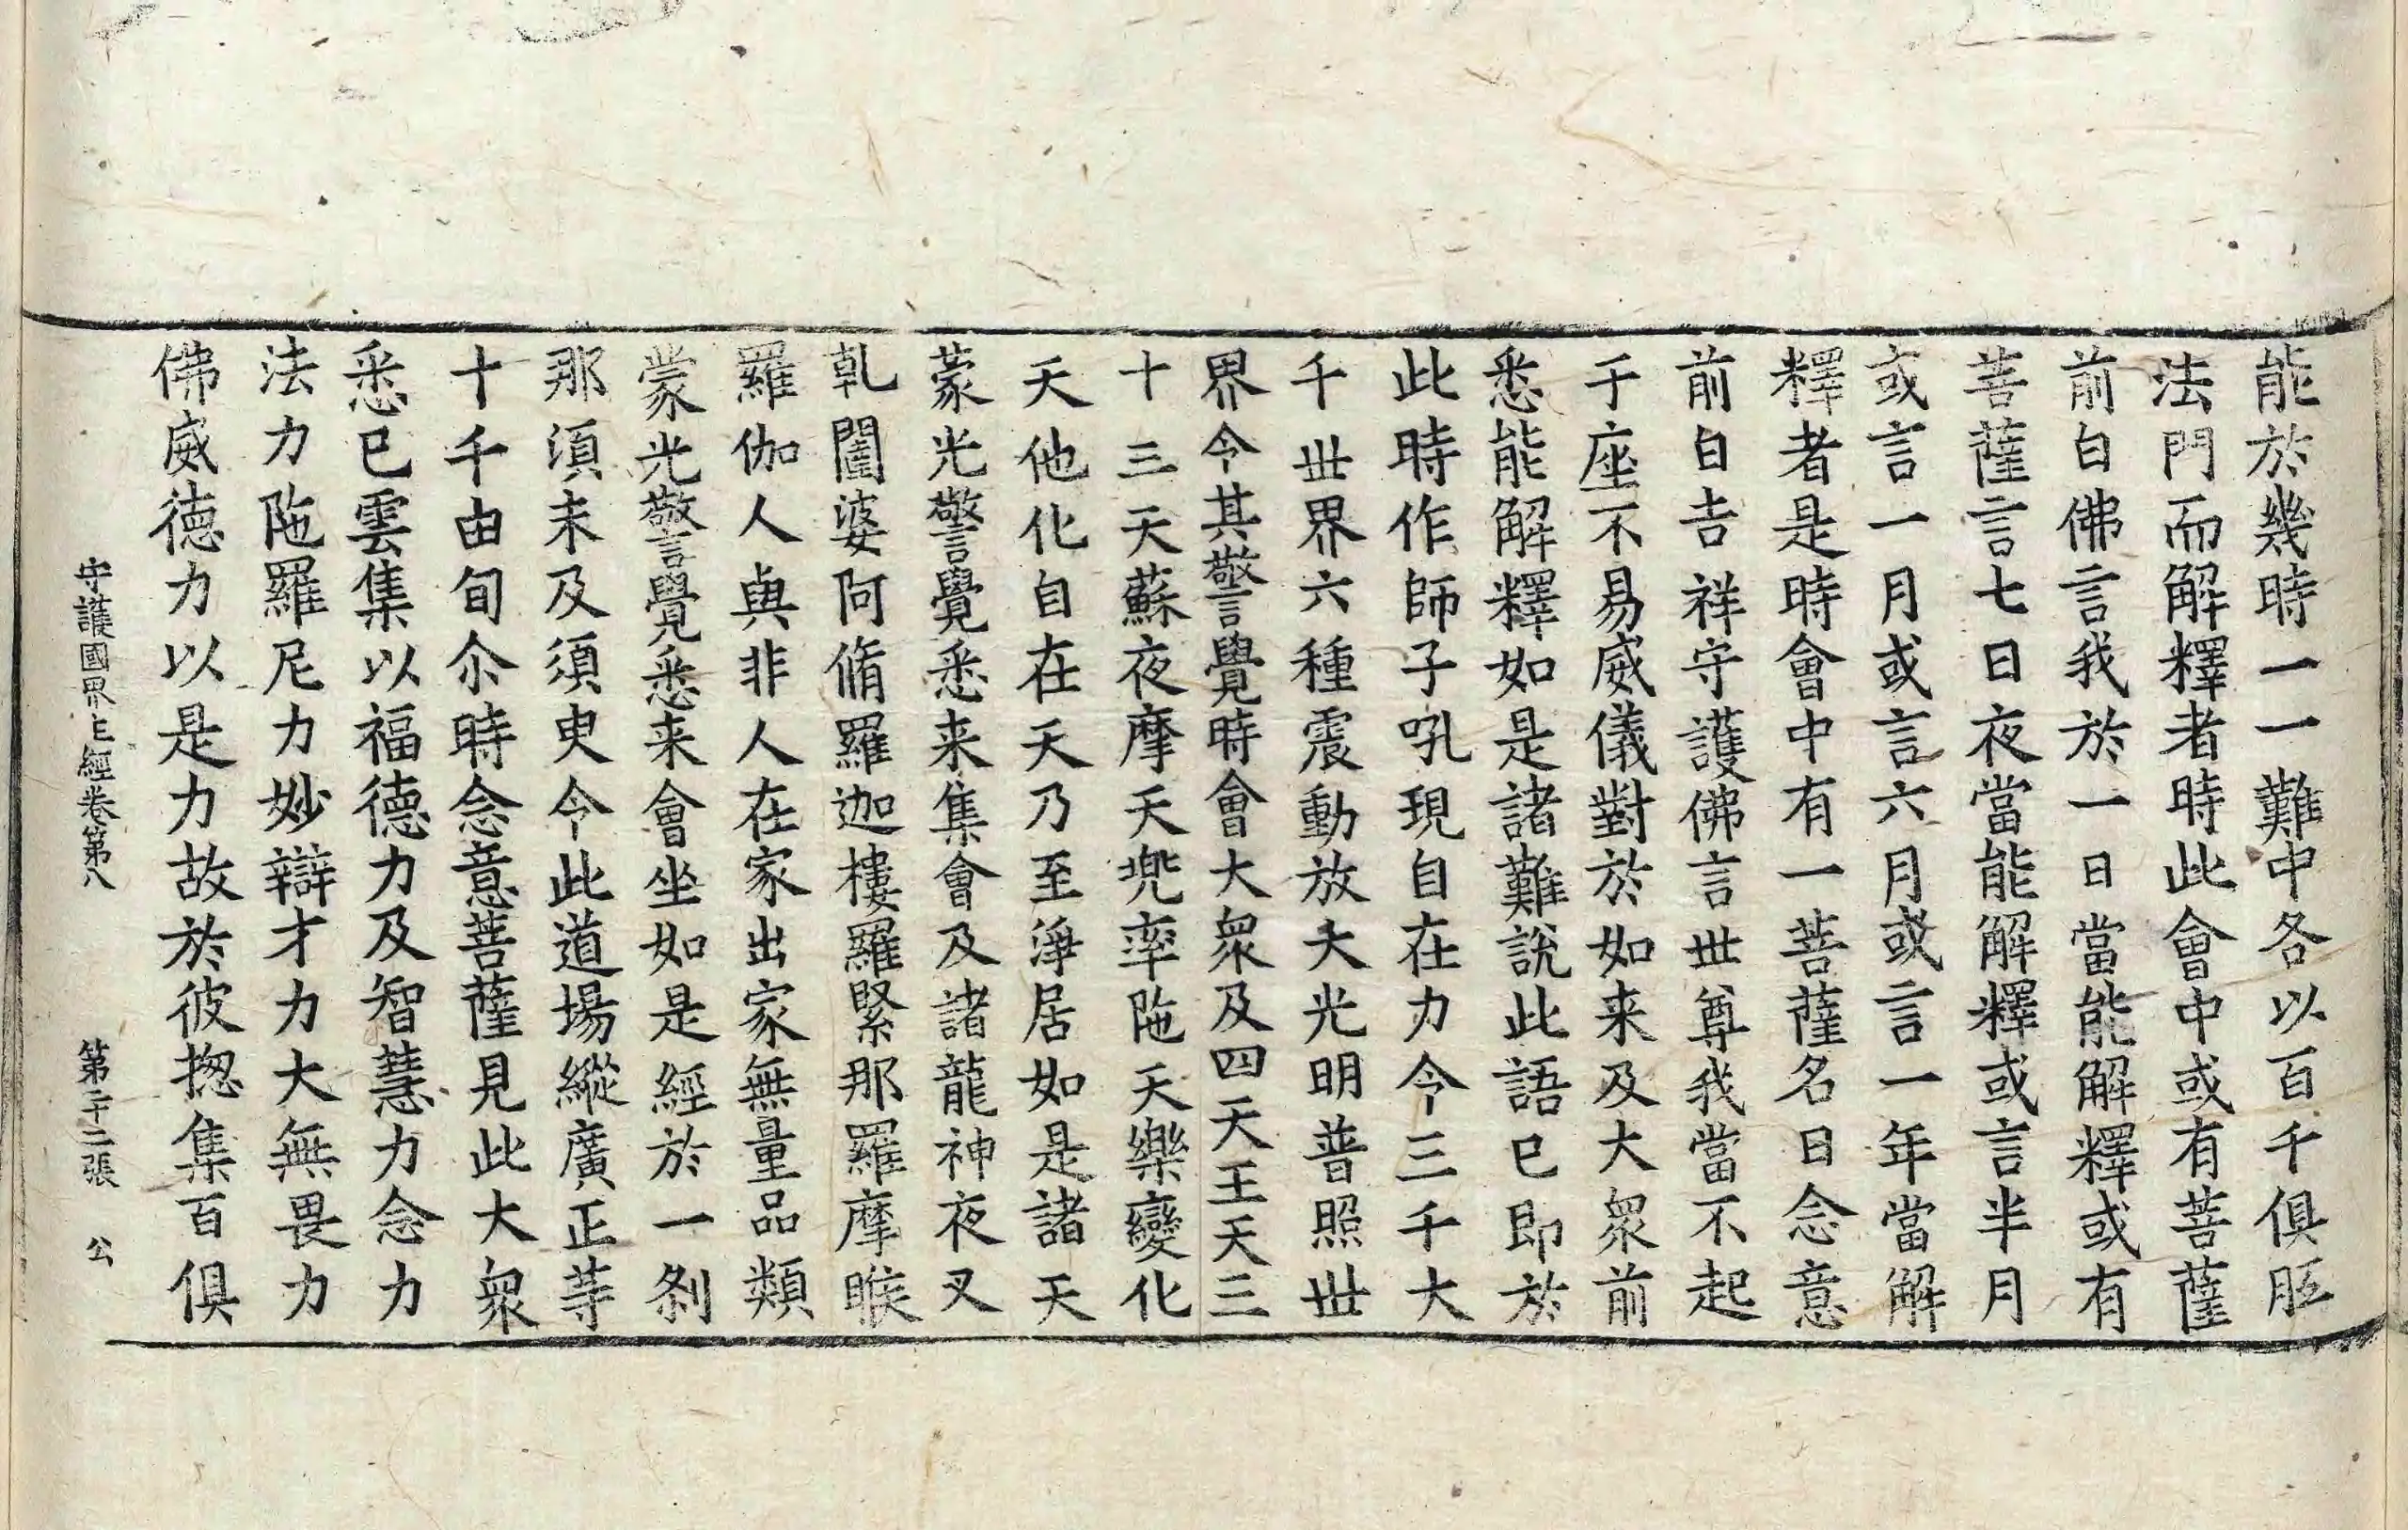 能於幾時一一難中各以百千俱胝
法門而解釋者時此會中或有菩薩
前白佛言我於一日當能解釋或有
菩薩言七日夜當能解釋或言半月
或言一月或言六月或言一年當解
釋者是時會中有一菩薩名曰念意
前白吉祥守護佛言世尊我當不起
于座不易威儀對於如来及大衆前
悉能解釋如是諸難說此語已即於
此時作師子吼現自在力令三千大
千世界六種震動放大光明普照世
界令其警覺時會大衆及四天王天三
十三天蘇夜摩天兠率陁天樂變化
天他化自在天乃至淨居如是諸天
蒙光警覺悉来集會及諸龍神夜叉
乹闥婆阿脩羅迦樓羅緊那羅摩睺
羅伽人與非人在家出家無量品類
蒙光警覺悉来會坐如是經於一剎
那湏未及須臾令此道場縱廣正等
十千由旬尒時念意菩薩見此大衆
悉已雲集以福德力及智慧力念力
法力陁羅尼力妙辯才力大無畏力
佛威德力以是力故於彼揔集百俱
守護國界主經卷第八　第二十二張　公